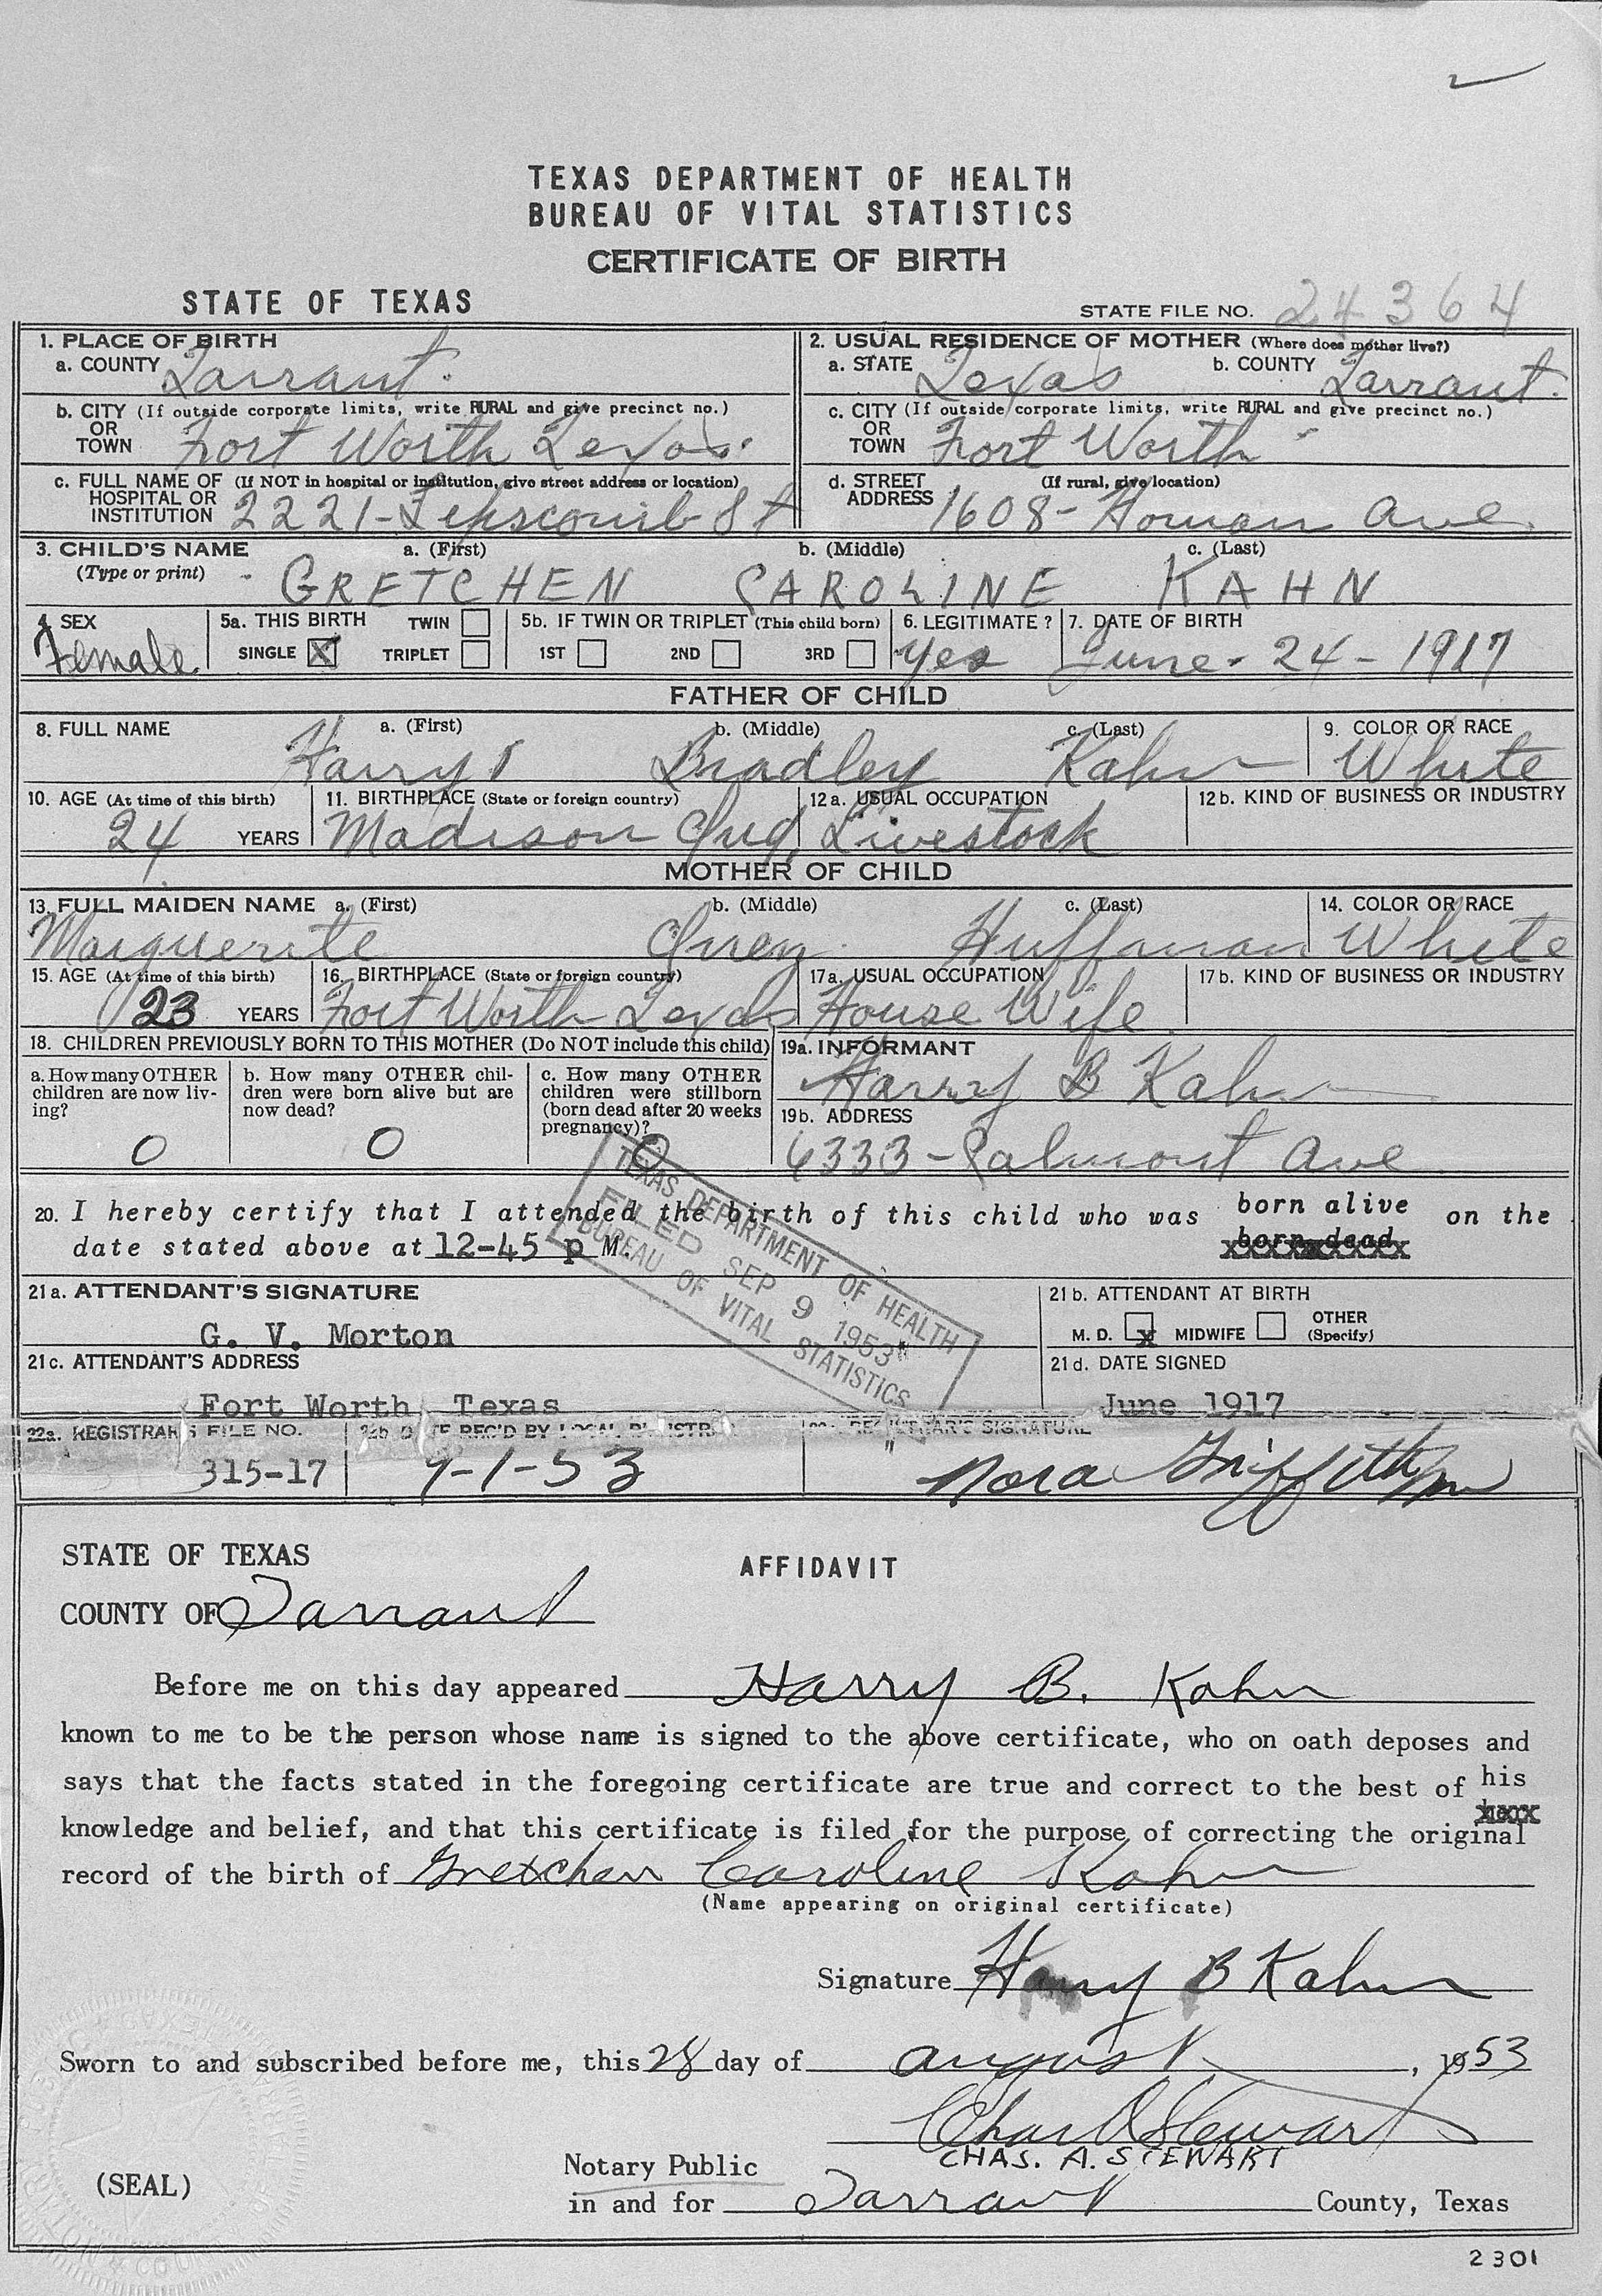 TEXAS DEPARTMENT OF HEALTH
BUREAU OF VITAL STATISTICS
CERTIFICATE OF BIRTH
STATE OF TEXAS
STATE FILE NO. 24364
1. PLACE OF BIRTH
a. COUNTY Tarrant.
2. USUAL RESIDENCE OF MOTHER (Where does mother live?)
a. STATE Texas b. COUNTY Tarrant.
b. CITY (If outside corporate limits, write RURAL and give precinct no.)
OR
TOWN Fort Worth Texas.
c. CITY (If outside corporate limits, write RURAL and give precinct no.)
OR
TOWN Fort Worth
c. FULL NAME OF (If NOT in hospital or institution, give street address or location)
HOSPITAL OR
INSTITUTION 2221- Lipscomb St
d. STREET (If rural, give location)
ADDRESS 1608- Homan Ave.
3. CHILD'S NAME a. (First) b. (Middle) c. (Last)
(Type or print) - GRETCHEN CAROLINE KAHN
4. SEX
Female
5a. THIS BIRTH TWIN
SINGLE X TRIPLET
5b. IF TWIN OR TRIPLET (This child born)
1ST 2ND 3RD
6. LEGITIMATE?
yes
7. DATE OF BIRTH
June - 24 - 1917
FATHER OF CHILD
8. FULL NAME a. (First) b. (Middle) c. (Last)
Harry Bradley Kahn
9. COLOR OR RACE
White
10. AGE (At time of this birth)
24 YEARS
11. BIRTHPLACE (State or foreign country)
Madison Ind.
12a. USUAL OCCUPATION
Livestock
12b. KIND OF BUSINESS OR INDUSTRY
MOTHER OF CHILD
13. FULL MAIDEN NAME a. (First) b. (Middle) c. (Last)
Marguerite Huffman
14. COLOR OR RACE
White
15. AGE (At time of this birth)
23 YEARS
16. BIRTHPLACE (State or foreign country)
Fort Worth Texas
17a. USUAL OCCUPATION
House Wife
17b. KIND OF BUSINESS OR INDUSTRY
18. CHILDREN PREVIOUSLY BORN TO THIS MOTHER (Do NOT include this child)
a. How many OTHER
children are now liv-
ing?
0
b. How many OTHER chil-
dren were born alive but are
now dead?
0
c. How many OTHER
children were stillborn
(born dead after 20 weeks
pregnancy)?
0
19a. INFORMANT
Harry B Kahn
19b. ADDRESS
6333 - Calmont Ave
20. I hereby certify that I attended the birth of this child who was born alive on the
born dead
date stated above at 12-45 p M.
TEXAS DEPARTMENT OF HEALTH
FILED SEP 9 1953
BUREAU OF VITAL STATISTICS
21a. ATTENDANT'S SIGNATURE
G. V. Morton
21b. ATTENDANT AT BIRTH
M. D. x MIDWIFE OTHER
(Specify)
21c. ATTENDANT'S ADDRESS
Fort Worth Texas
21d. DATE SIGNED
June 1917
22a. REGISTRAR'S FILE NO.
315-17
REC'D BY LOCAL
9-1-53
REGISTRAR'S SIGNATURE
Nora Griffith
STATE OF TEXAS
AFFIDAVIT
COUNTY OF Tarrant
Before me on this day appeared Harry B. Kahn
known to me to be the person whose name is signed to the above certificate, who on oath deposes and
says that the facts stated in the foregoing certificate are true and correct to the best of his
knowledge and belief, and that this certificate is filed for the purpose of correcting the original
record of the birth of Gretchen Caroline Kahn
(Name appearing on original certificate)
Signature Harry B Kahn
Sworn to and subscribed before me, this 28 day of august, 1953
Chas A Stewart
CHAS. A. STEWART
Notary Public
(SEAL)
in and for Tarrant County, Texas
2301